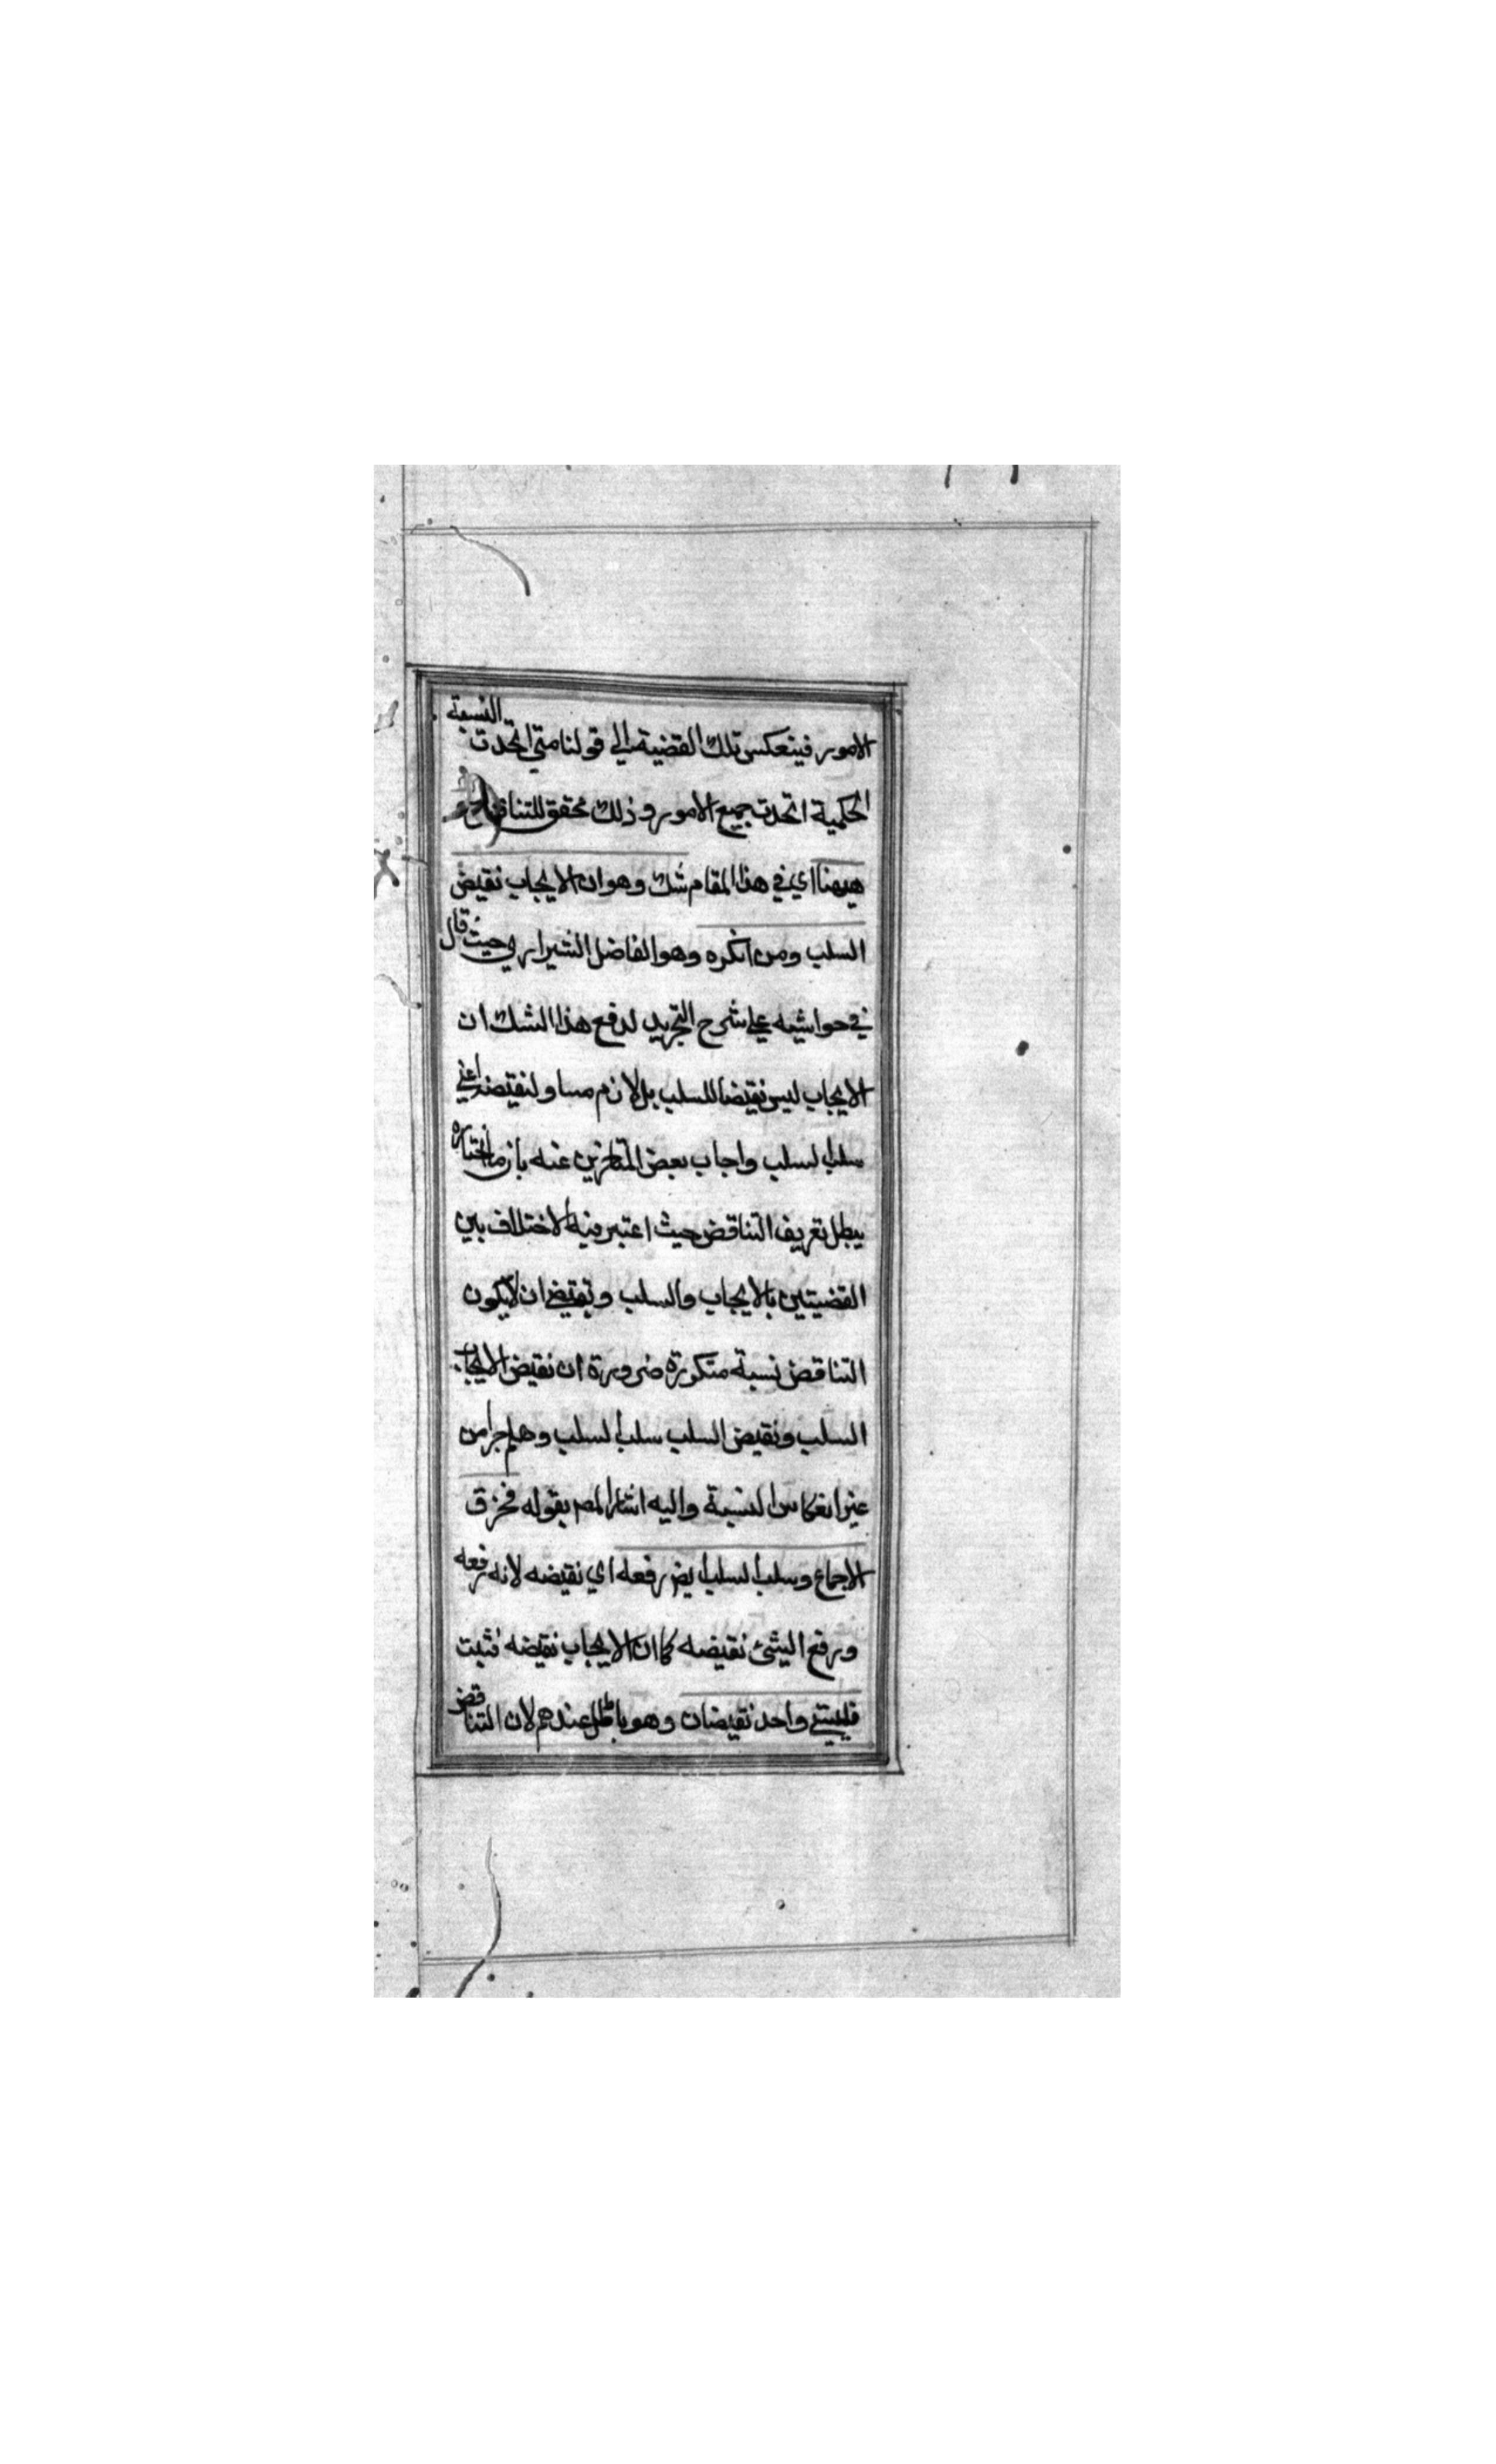 الامور فينعكس تلك القضية الي قولنا متي اتحدت النسبة
الحكمية اتحدت جميع الامور و ذلك محقق للتناقض
هيهنا اي في هذا المقام شك وهو ان الايجاب نقيض
السلب ومن انكره وهو الفاضل الشيرازي حيث قال
في حواشيه علي شرح التجريد لدفع هذا الشك ان
الايجاب ليس نقيضا للسلب بل لازم مساو لنقيضه اعني
سلب السلب واجاب بعض المتاخرين عنه بان ما اختاره
يبطل تعريف التناقض حيث اعتبر فيه الاختلاف بين
القضيتين بالايجاب والسلب و يقتضي ان لايكون
التناقض نسبة متكررة ضرورة ان نقيض الايجاب
السلب ونقيض السلب سلب السلب وهلم جرا من
غير انعكاس النسبة واليه اشار المص بقوله فخرق
الاجماع وسلب السلب ايض رفعه اي نقيضه لانه رفعه
ورفع الشئ نقيضه كما ان الايجاب نقيضه فثبت
فلشئ واحد نقيضان وهو باطل عندهم لان التناقض